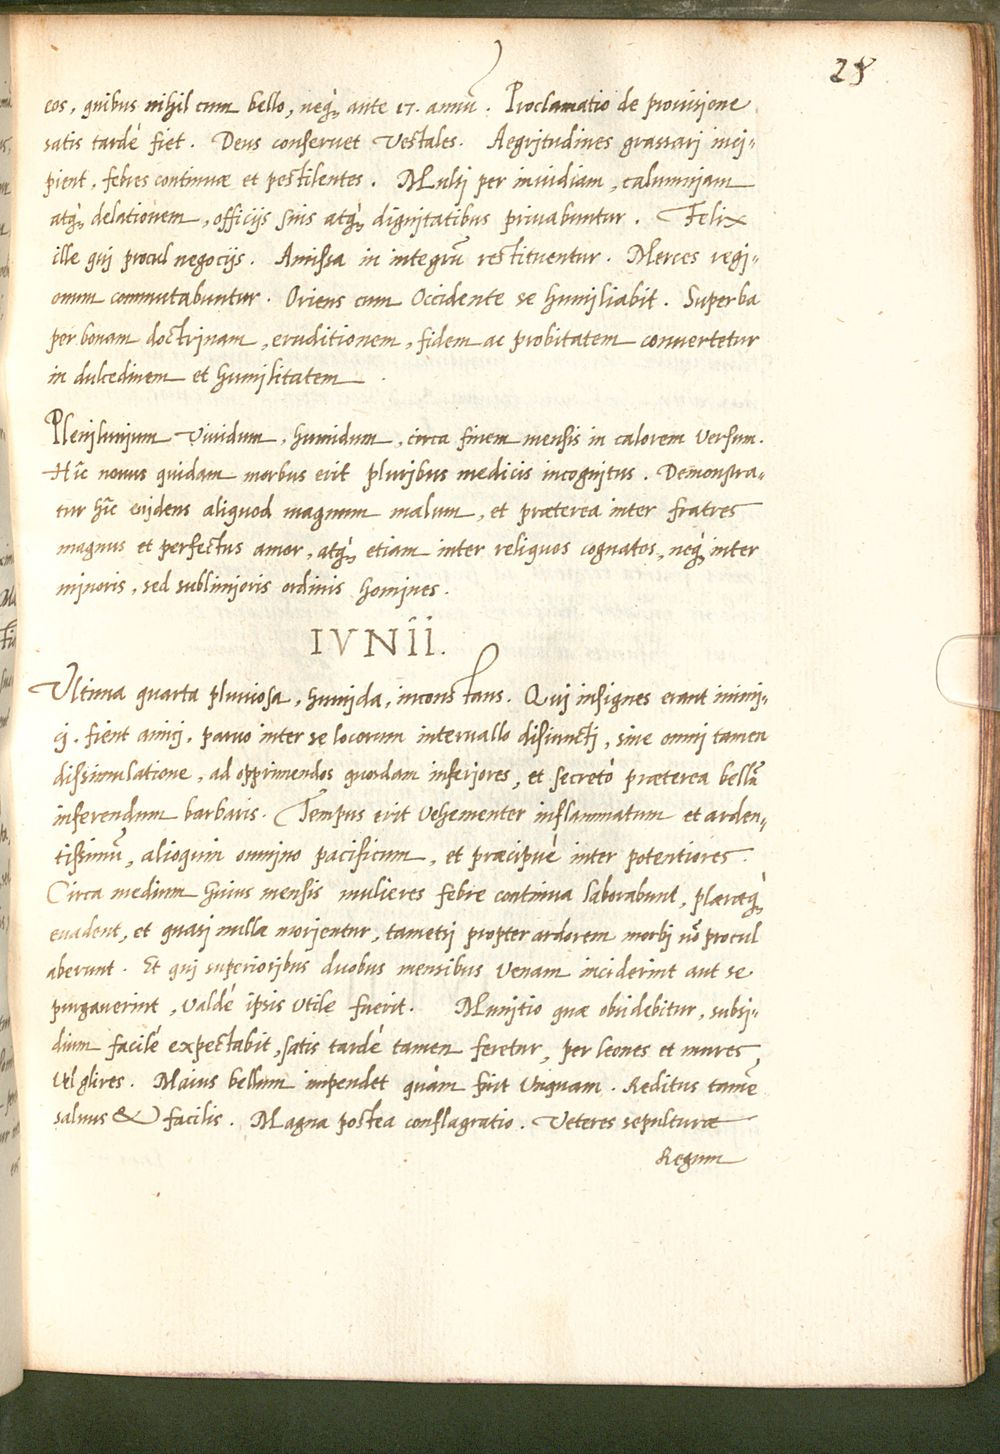 28
eos, quibus nihil cum bello, neq₃ ante 17. annū. Proclamatio de prouisione
satis tardè fiet. Deus conseruet Vestales. Aegritudines grassari inci⸗
pient, febres continuæ et pestilentes. Multi per inuidiam, calumniam
atq₃ delationem, officijs suis atq₃ dignitatibus priuabuntur. Felix
ille qui procul negocijs. Amissa in integrū restituentur. Merces regi⸗
onum commutabuntur. Oriens cum Occidente se humiliabit. Superba
per bonam doctrinam, eruditionem, fidem ac probitatem conuertetur
in dulcedinem et humilitatem.
Plenilunium Viuidum, humidum, circa finem mensis in calorem Versum.
Hîc nouus quidam morbus erit pluribus medicis incognitus. Demonstra⸗
tur hîc euidens aliquod magnum malum, et præterea inter fratres
magnus et perfectus amor, atq₃ etiam inter reliquos cognatos, neq₃ inter
minoris, sed sublimioris ordinis homines.
IVNII.
Vltima quarta pluuiosa, humida, inconstans. Qui insignes erant inimi⸗
ci, fient amici, paruo inter se locorum interuallo disiuncti, sine omni tamen
dissimulatione, ad opprimendos quosdam inferiores, et secretò præterea bellū
inferendum barbaris. Tempus erit Vehementer inflammatum et arden⸗
tissimū, alioquin omnino pacificum, et præcipuè inter potentiores.
Circa medium huius mensis mulieres febre continua laborabunt, pleræq₃
euadent, et quasi nullæ morientur, tametsi propter ardorem morbi nō procul
aberunt. Et qui superioribus duobus mensibus Venam inciderint aut se
purgauerint, Valdè ipsis Vtile fuerit. Munitio quæ obsidebitur, subsi⸗
dium facilè expectabit, satis tardè tamen feretur, per leones et mures,
Vel glires. Maius bellum impendet quàm fuit Vnquam. Reditus tamē
saluus & facilis. Magna postea conflagratio. Veteres sepulturæ
Regum